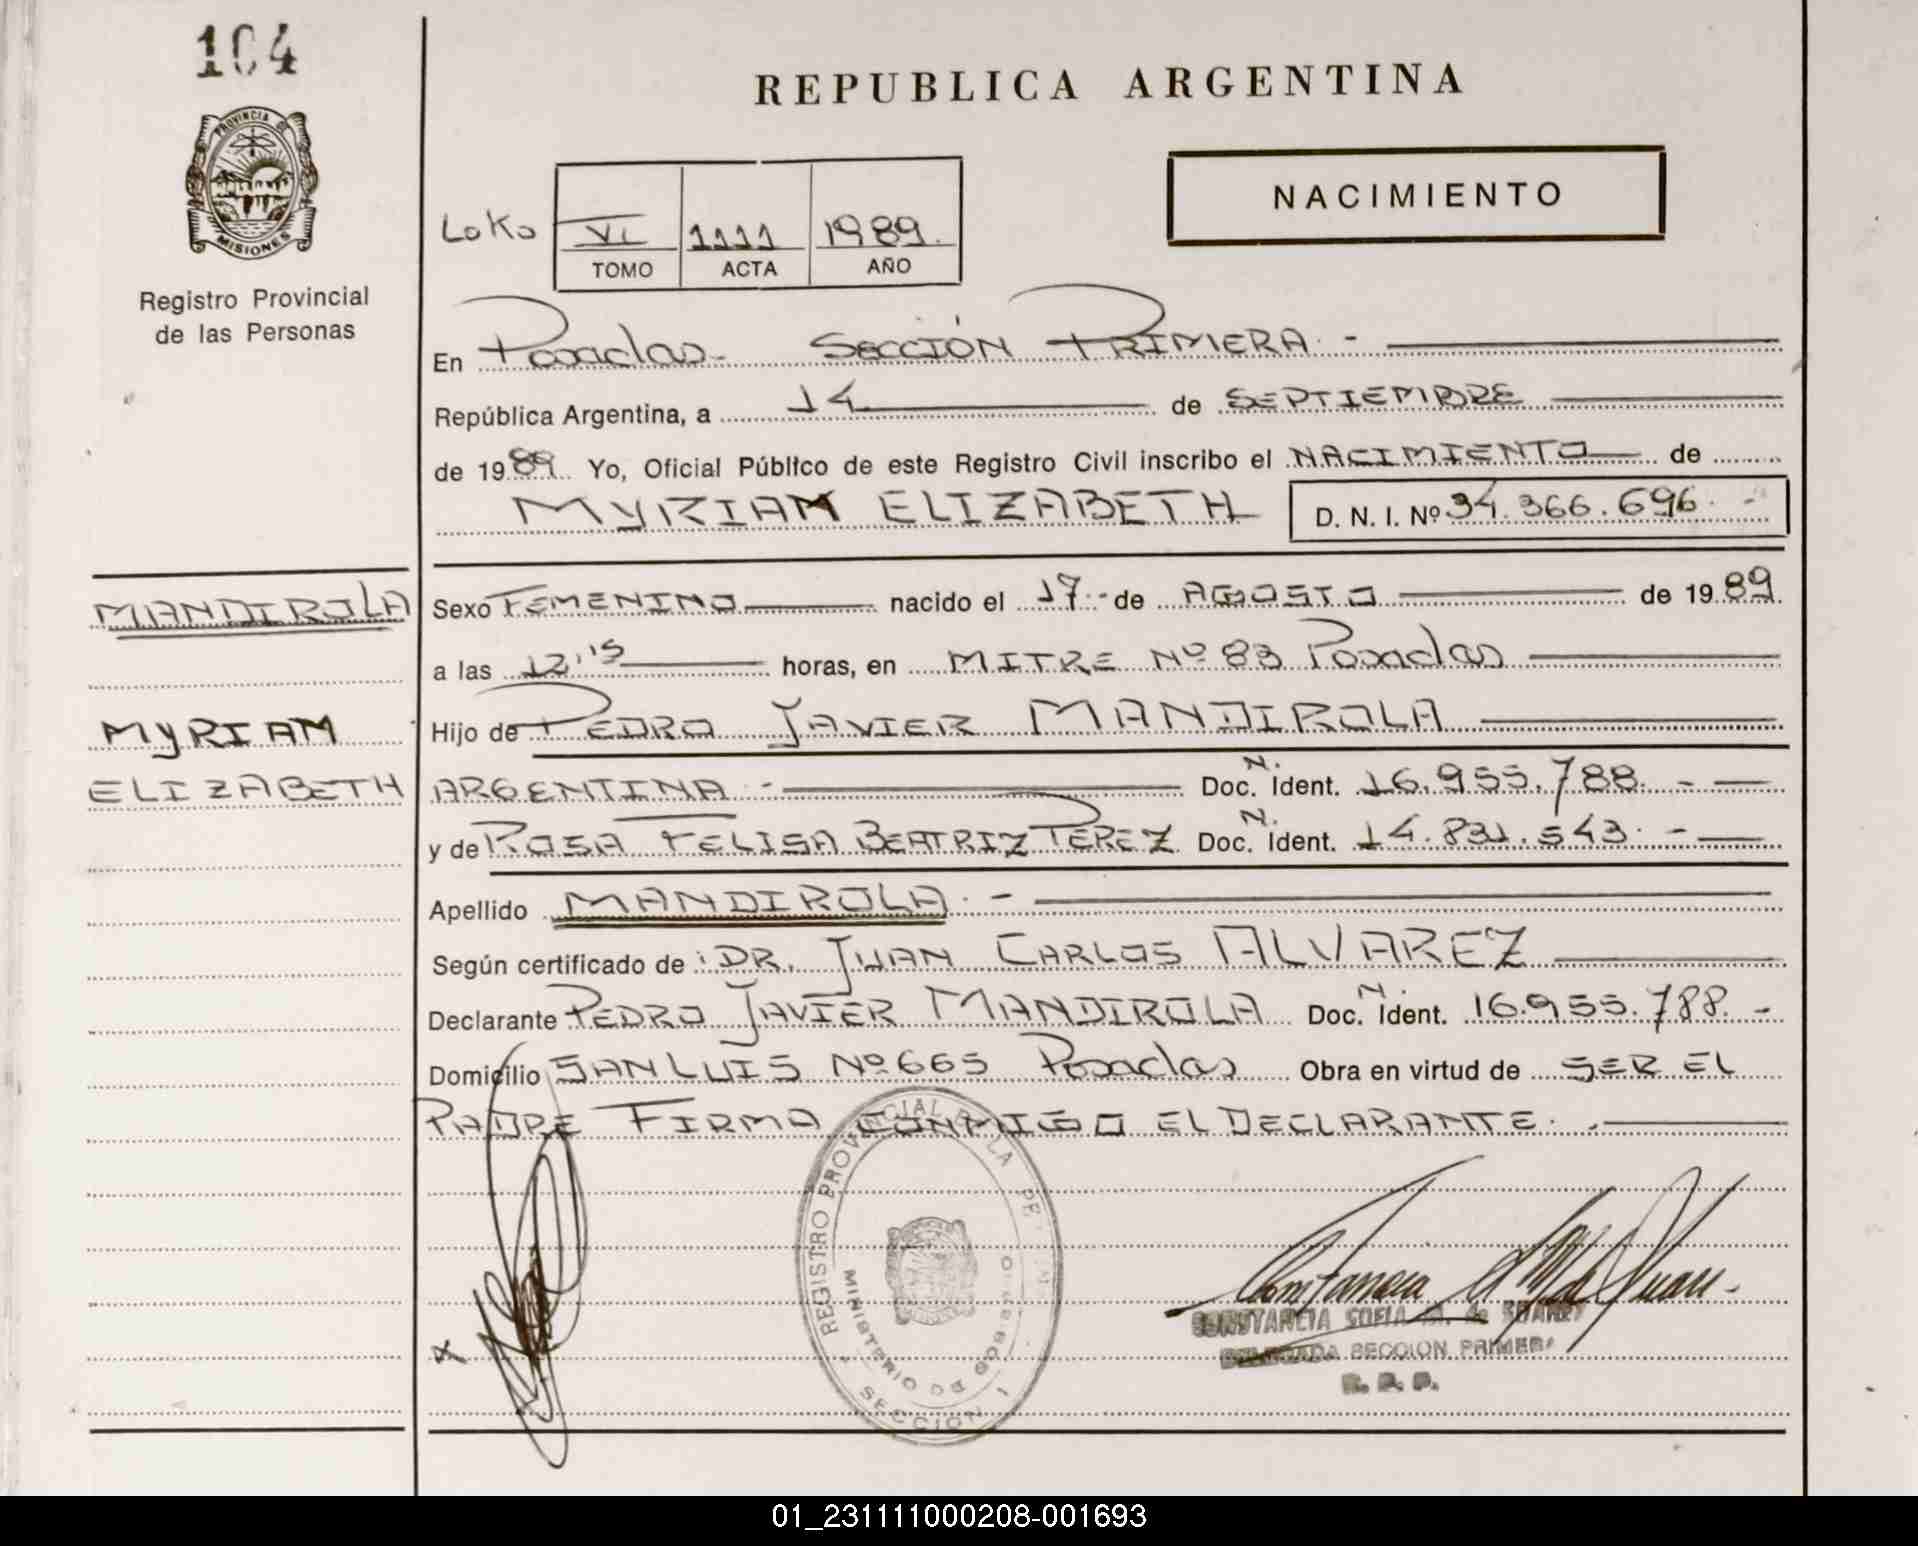 104
PROVINCIA DE
MISIONES
Registro Provincial
de las Personas
REPUBLICA ARGENTINA
NACIMIENTO
VI 1111 1989.
TOMO ACTA AÑO
En Posadas- Sección PRIMERA.-
República Argentina, a 14 de SEPTIEMBRE
de 1989. Yo, Oficial Público de este Registro Civil inscribo el NACIMIENTO de
MYRIAM ELIZABETH D. N. I. Nº 34.366.696.-
MANDIROLA
MYRIAM
ELIZABETH
Sexo FEMENINO nacido el 17 de AGOSTO de 1989
a las 12,15 horas, en MITRE Nº 83 Posadas
Hijo de PEDRO JAVIER MANDIROLA
ARGENTINA.- Doc. N. Ident. 16.955.788.-
y de ROSA FELISA BEATRIZ PEREZ Doc. N. Ident. 14.831.543.-
Apellido MANDIROLA.-
Según certificado de: DR. JUAN CARLOS ALVAREZ
Declarante PEDRO JAVIER MANDIROLA Doc. N. Ident. 16.955.788.-
Domicilio SAN LUIS Nº 665 Posadas Obra en virtud de SER EL
PADRE FIRMA CONMIGO EL DECLARANTE.
REGISTRO PROVINCIAL DE LA PE
MINISTERIO DE GOBIERNO
SECCION 1
CONSTANCIA SOFIA M. de SUAREZ
DELEGADA SECCION PRIMERA
R. P. P.
01_231111000208-001693